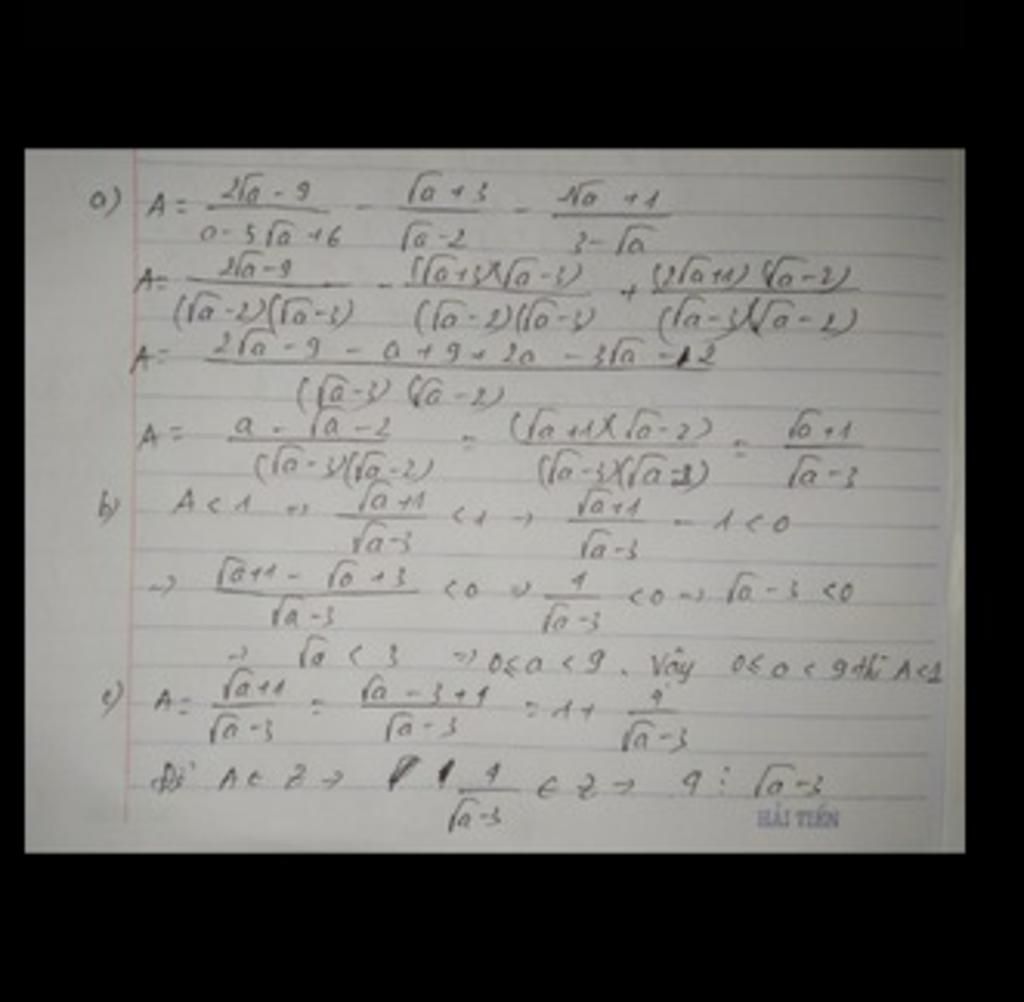 a) A = (2√a - 9)/(a - 5√a + 6) - (√a + 3)/(√a - 2) - (2√a + 1)/(3 - √a)
A = (2√a - 9)/((√a - 2)(√a - 3)) - ((√a + 3)(√a - 3))/((√a - 2)(√a - 3)) + ((2√a + 1)(√a - 2))/((√a - 3)(√a - 2))
A = (2√a - 9 - a + 9 + 2a - 3√a - 2)/((√a - 3)(√a - 2))
A = (a - √a - 2)/((√a - 3)(√a - 2)) = ((√a + 1)(√a - 2))/((√a - 3)(√a - 2)) = (√a + 1)/(√a - 3)
b) A < 1 => (√a + 1)/(√a - 3) < 1 => (√a + 1)/(√a - 3) - 1 < 0
=> (√a + 1 - √a + 3)/(√a - 3) < 0 => 4/(√a - 3) < 0 => √a - 3 < 0
=> √a < 3 => 0 ≤ a < 9. Vậy 0 ≤ a < 9 thì A < 1
c) A = (√a + 1)/(√a - 3) = (√a - 3 + 4)/(√a - 3) = 1 + 4/(√a - 3)
Để A ∈ Z => 4/(√a - 3) ∈ Z => 4 ⋮ √a - 3
HẢI TIẾN